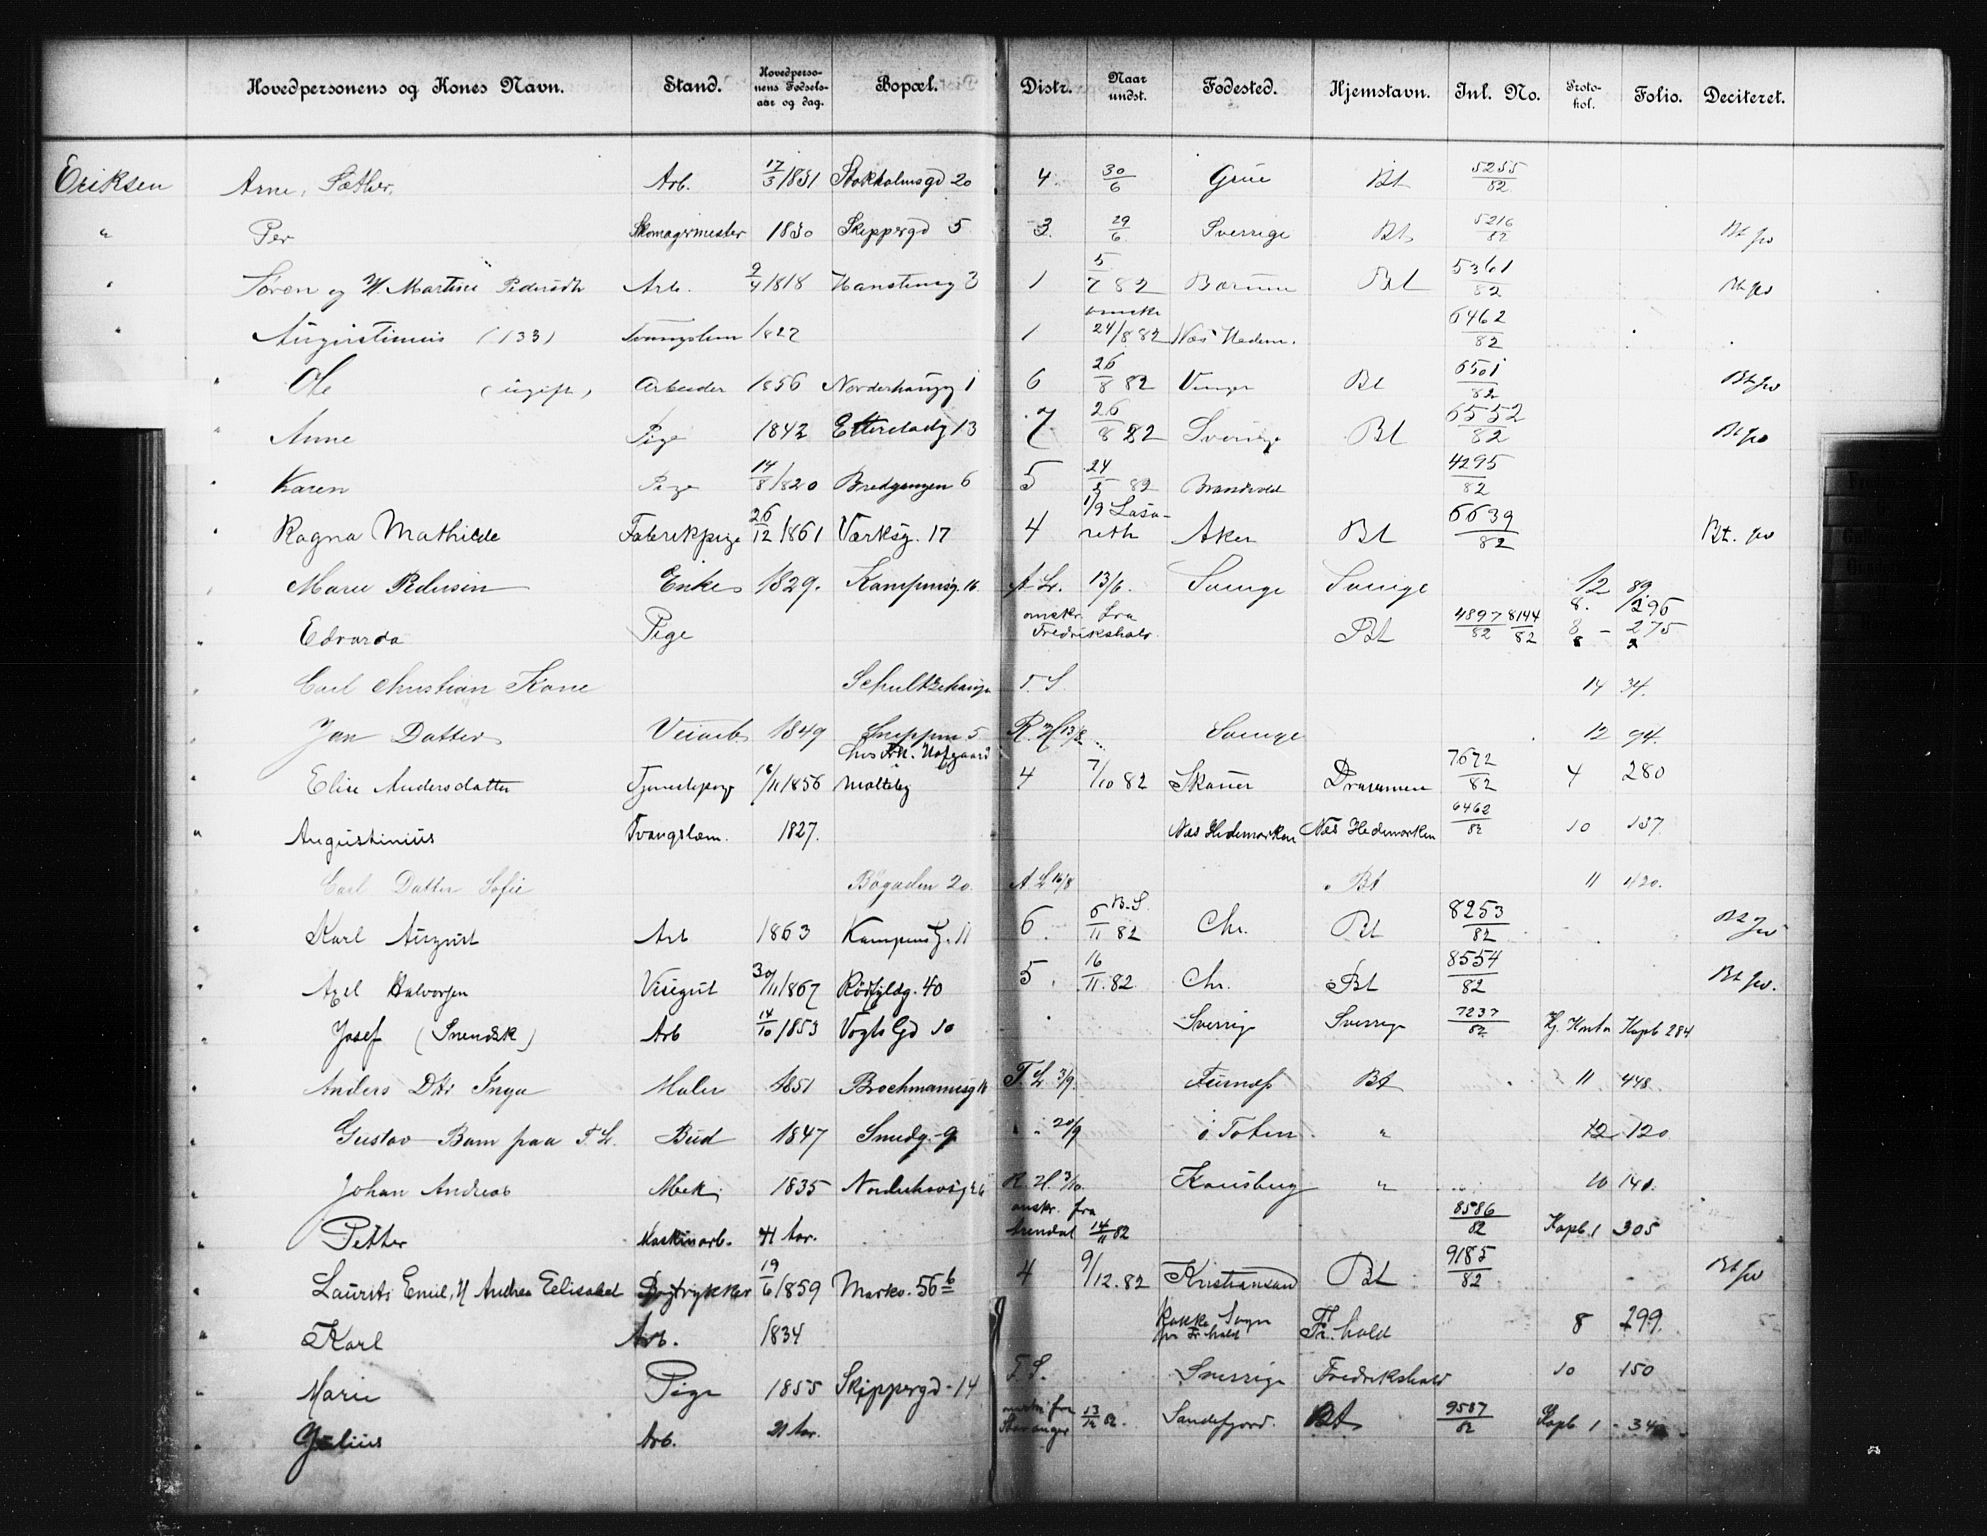 Hovedpersonens og Kones Navn. Stand. Hovedperso-nens Fødsels-aar og dag. Bopæl. Distr. Naar undst. Fødested. Hjemstavn. Inl. No. Proto-kol. Folio. Deciteret.
Eriksen Arne, Sæther. Arb. 17/3 1831 Stokholmsgd 20 4. 30/6 Grue Bt 5255/82
" Per Skomagermester 1830 Skippergd 5 3. 29/6. Sverrige Bt 5216/82 Bt
" Søren og H. Martine Pedersdtr Arb. 9/4 1818 3 1 5/7 82 Bærum Bt 5361/82 Bt
" Augustinius (133) Tvangslem 1827 1 24/8 82 Næs Hedem. 6462/82
" Ole (ugift) Arbeider 1856 Norderhaugg 1 6 26/8 82 Vinger Bt 6501/82 Bt
" Anne Pige 1842 Etterstadg 13 7. 26/8 82 Sverige Bt 6552/82 Bt
" Karen Pige 14/8 1820 Bredgangen 6 5 24/5 82 Brandvold 4295/82
" Ragna Mathilde Fabrikpige 26/12 1861 Værksg. 17 4 1/9 Lasa-reth Aker Bt 6639/82 Bt.
" Marie Pedersen Enke 1829. Kampensg. 16 A L. 13/6. Sverige Sverige 12 89.
" Edvarda Pige omskr. fra Fredrikshald. Bt 4897/82 8144/82 8. 296 8 - 275
" Carl Christian Kone Schultzehaugen T. S. 14 34.
Jan Datter Veiarb. 1849 5 R. H 13/8 Sverige 12 94.
" Elise Andersdatter Tjenestepige 16/11 1856 hos Ad. Hofgaard Molteby 4 7/10 82 Skouer Drammen 7672/82 4 280
" Augustinius Tvangslem. 1827. Næs Hedemarken Næs Hedemarken 6462/82 10 137
" Carl Datter Sofie Bøgaden 20. A L 16/8 Bt 11 420.
" Karl August Arb 1863 Kampensg. 11 6 B.S. 6/11 82 Chr. Bt 8253/82 Bt
" Axel Halvorsen Visegut 30/11 1867 Rødfyldg. 40 5. 16/11. 82. Chr. Bt 8554/82 Bt
" Josef (Svendsk) Arb 14/10 1853 Vogts Gd 10 Sverrig Sverrige 7237/82 Hj. Kontr Kopb 284
" Anders Dtr Inga Maler 1851 Brochmannsg T. L. 3/9. Furnæs Bt 11 448.
" Gustav Barn paa T. L. Bud 1847 Smedg. 9 " " 20/9 ø Toten " 12 120
" Johan Andreas Mek. 1835 R. H. 3/10. Konsberg " 10 140.
" Petter Maskinarb. 41 Aar. omskr. fra Arendal 14/11 82 8586/82 Kopb 1 305
" Laurits Emil, H Andrea Elisabet Bogtrykker 19/6 1859 Markv. 56 b 4 9/12. 82 Kristiansand Bt 9185/82 Bt
" Karl Arb. 1834 Rakke Sogn pr Fr.hald Fr.hald 8 299.
" Marie Pige 1855 Skippergd - 14 F. S. Sverrige Fredrikshald 10 150
" Julius Arb. 21 Aar. omskr fra Stavanger 13/12 82. Sandefjord. Bt 9587/82 Kopb 1